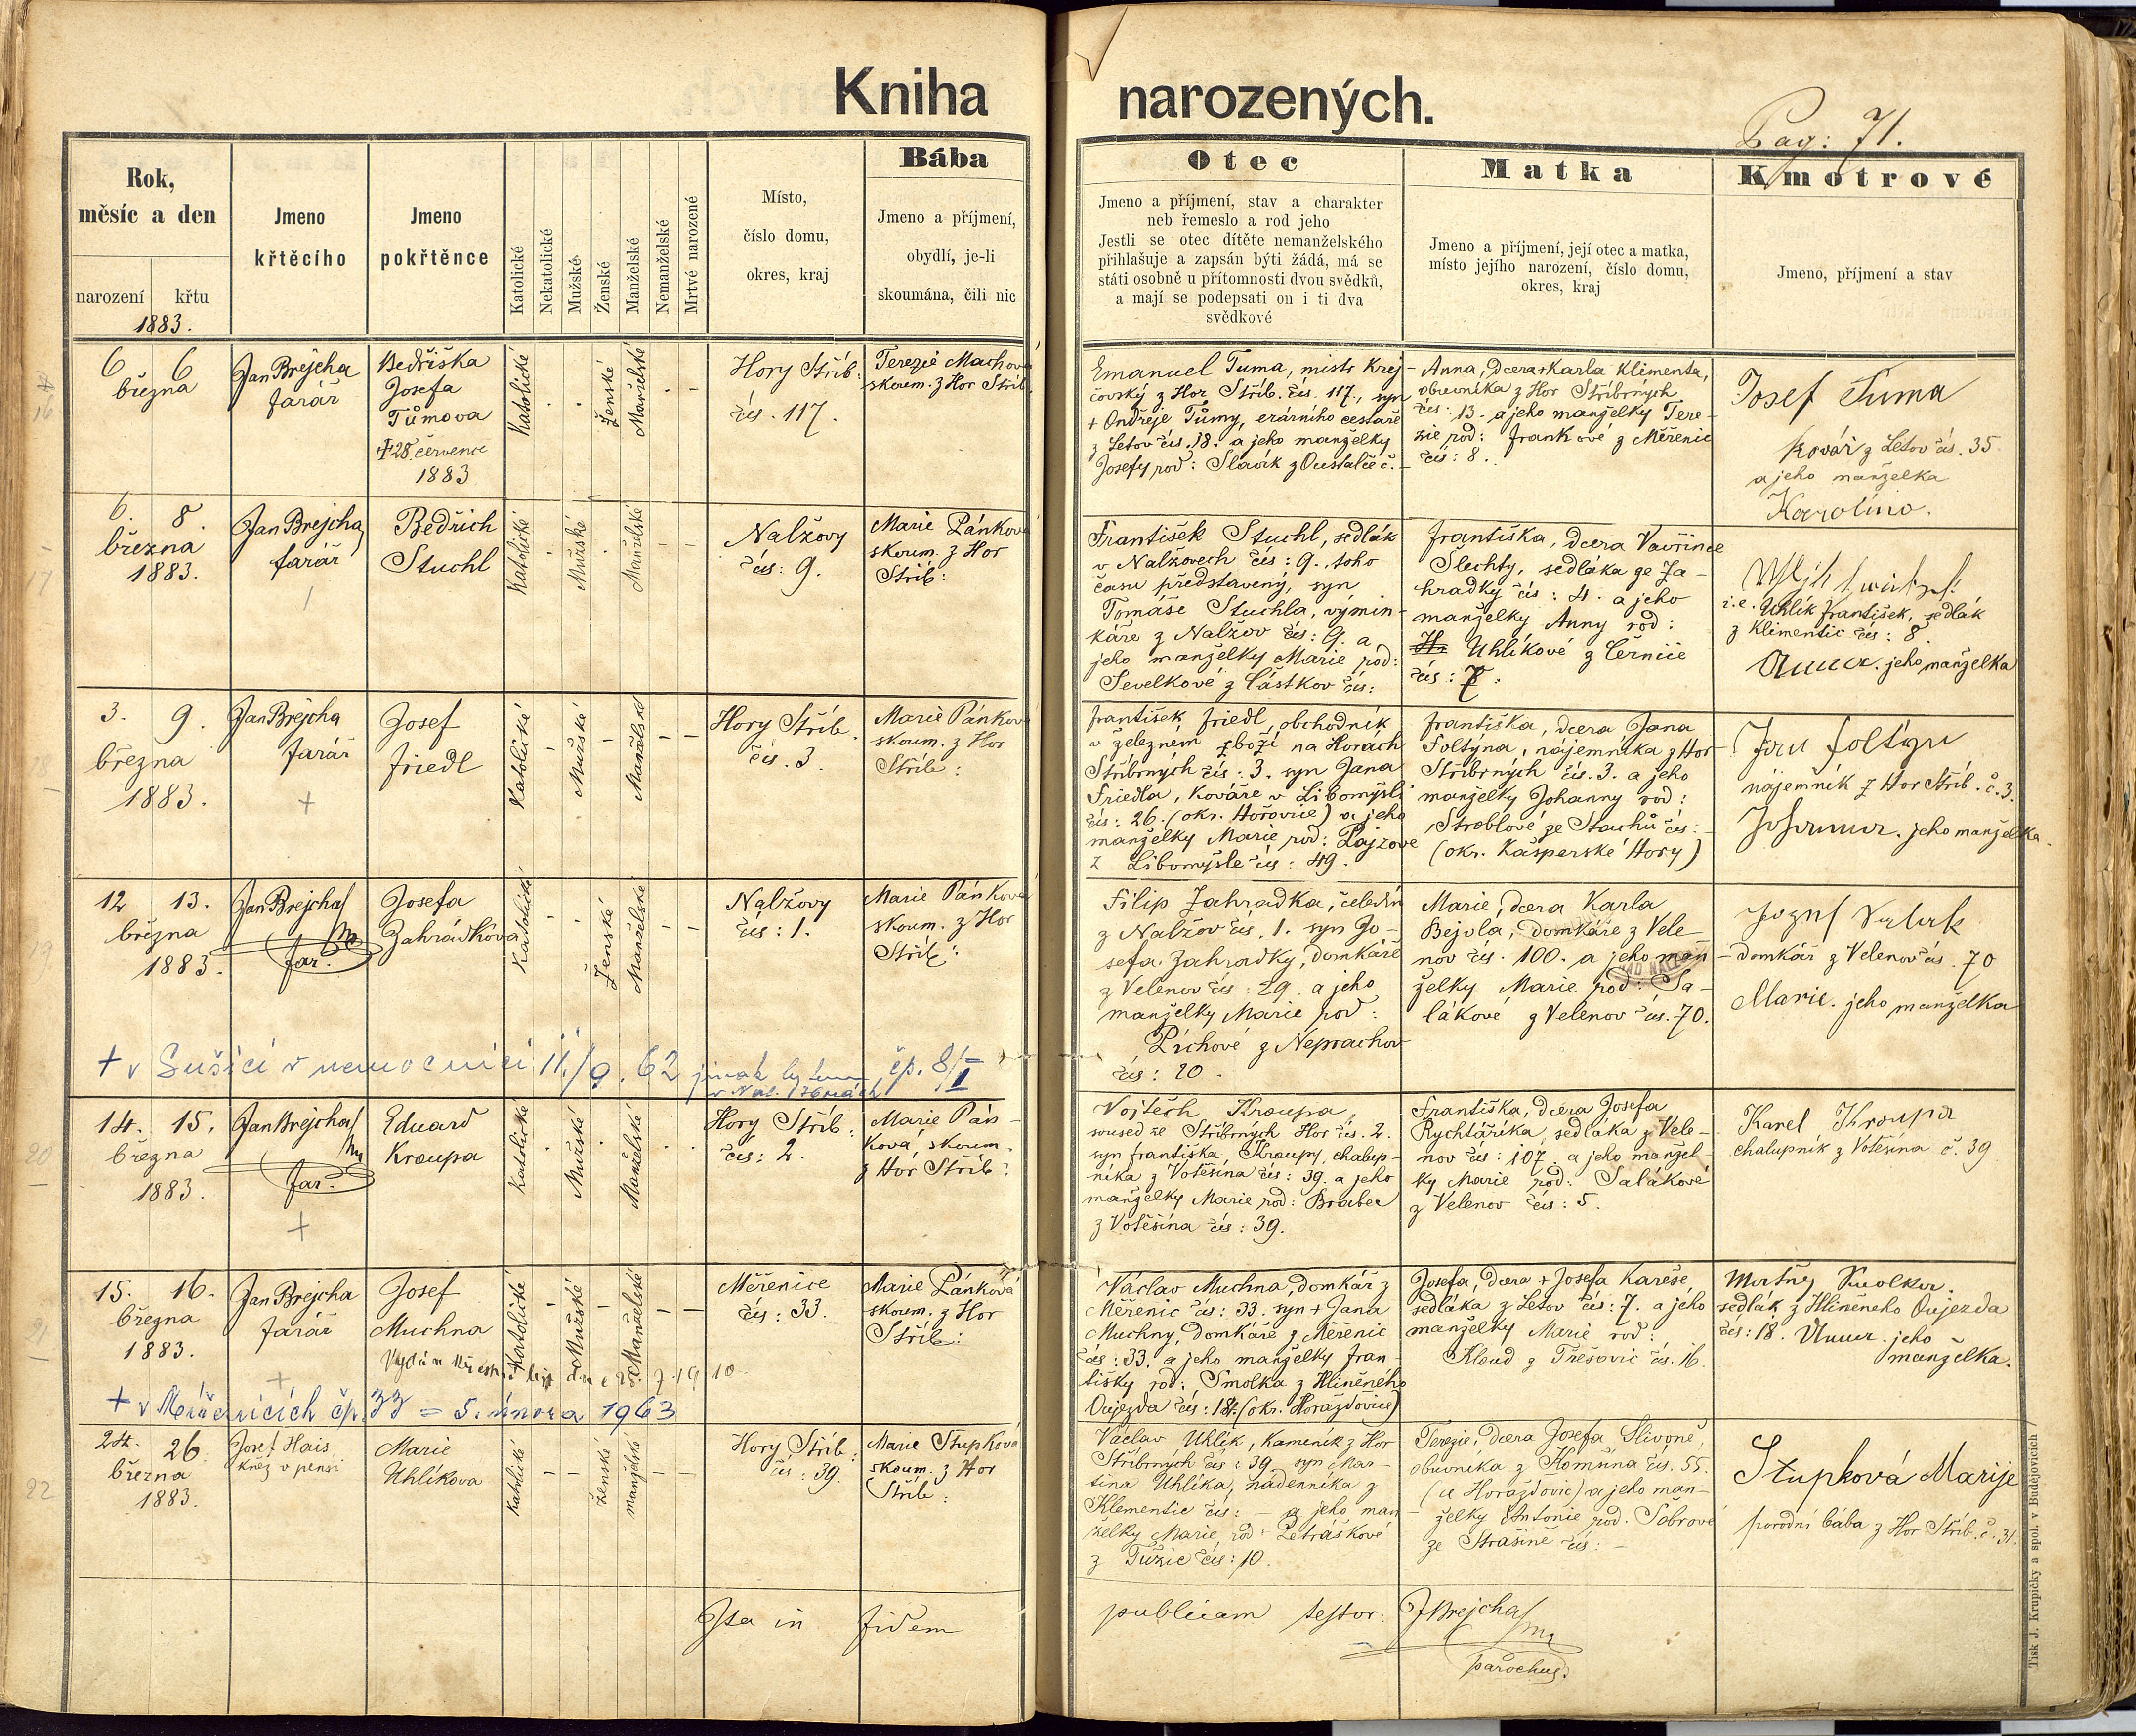 Kniha narozených.
Pag: 71.
Rok,
měsíc a den
narození
křtu
1883.
Jmeno
křtěcího
Jmeno
pokřtěnce
Katolické
Nekatolické
Mužské
Ženské
Manželské
Nemanželské
Mrtvě narozené
Místo,
číslo domu,
okres, kraj
Bába
Jmeno a příjmení,
obydlí, je-li
skoumána, čili nic
Otec
Jmeno a příjmení, stav a charakter
neb řemeslo a rod jeho
Jestli se otec dítěte nemanželského
přihlašuje a zapsán býti žádá, má se
státi osobně u přítomnosti dvou svědků,
a mají se podepsati on i ti dva
svědkové
Matka
Jmeno a příjmení, její otec a matka,
místo jejího narození, číslo domu,
okres, kraj
Kmotrové
Jmeno, příjmení a stav
16
6 6
března
Jan Brejcha
farář
Bedřiška
Josefa
Tůmova
+28 července
1883
Katolické
Ženské
Manželské
Hory Stříb.
čís. 117.
Terezie Machová
skoum. z Hor Stříb.
Emanuel Tuma, mistr krej-
čovský z Hor Stříb. čís. 117., syn
+ Ondřeje Tůmy, erárního cestáře
z Letov čís. 18. a jeho manželky
Josefy rod: Slavík z
Anna, dcera + Karla Klimenta,
obuvníka z Hor Stříbrných
čís: 13. a jeho manželky Tere-
zie rod: Frankové z Měřenic
čís: 8.
Josef Tuma
kovář z Letov čís. 35
a jeho manželka
Karolina.
17
6. 8.
března
1883.
Jan Brejcha
farář
Bedřich
Stuchl
Katolické
Mužské
Manželské
Nalžovy
čís: 9.
Marie Pánková
skoum. z Hor
Stříb:
František Stuchl, sedlák
v Nalžovech čís: 9. toho
času představený, syn
Tomáše Stuchla, výmin-
káře z Nalžov čís: 9. a
jeho manželky Marie rod:
Ševelkové z Částkov čís:
Františka, dcera Vavřince
Šlechty, sedláka ze Za-
hradky čís: 4. a jeho
manželky Anny rod:
Uhlíkové z Černíče
čís: 7.
i.e. Uhlík František, sedlák
z Klimentic čís: 8
Anna. jeho manželka
18
3. 9.
března
1883.
Jan Brejcha
farář
Josef
Friedl
Katolické
Mužské
Manželské
Hory Stříb.
čís. 3.
Marie Pánková
skoum. z Hor
Stříb:
František Friedl, obchodník
v železném zboží na Horách
Stříbrných čís: 3. syn Jana
Friedla, kováře v Libomyšli
čís: 26. (okr. Hořovice) a jeho
manželky Marie rod: Pajzové
z Libomyšle čís: 49.
Františka, dcera Jana
Foltýna, nájemníka z Hor
Stříbrných čís. 3. a jeho
manželky Johanny rod:
Stroblové ze Stachů čís:
(okr. Kašperské Hory)
Jan Foltýn
nájemník z Hor Stříb. č. 3.
Johanna. jeho manželka.
19
12 13.
března
1883.
Jan Brejcha
far.
Josefa
Zahrádková
Katolické
Ženské
Manželské
Nalžovy
čís: 1.
Marie Pánková
skoum. z Hor
Stříb:
Filip Zahradka, čeledín
z Nalžov čís. 1. syn Jo-
sefa Zahradky, domkáře
z Velenov čís: 29. a jeho
manželky Marie rod:
Píchové z Neprachov
čís: 20.
Marie, dcera Karla
Bejvla, domkáře z Vele-
nov čís. 100. a jeho man-
želky Marie rod: Sa-
lákové z Velenov čís. 70.
domkář z Velenov čís. 70
Marie. jeho manželka
+ v Sušici v nemocnici 11./9. 62 čp. 8/I
20
14. 15.
března
1883.
Jan Brejcha
far.
Eduard
Kroupa
Katolické
Mužské
Manželské
Hory Stříb:
čís: 2.
Marie Pán-
ková, skoum.
z Hor Stříb:
Vojtěch Kroupa,
soused ze Stříbrných Hor čís. 2.
syn Františka Kroupy, chalup-
níka z Votěšína čís: 39. a jeho
manželky Marie rod: Brabec
z Votěšína čís: 39.
Františka, dcera Josefa
Rychtáříka, sedláka z Vele-
nov čís: 107. a jeho manžel-
ky Marie rod: Salákové
z Velenov čís: 5.
Karel Kroupa
chalupník z Votěšína č. 39
21
15. 16.
března
1883.
Jan Brejcha
farář
Josef
Muchna
Katolické
Mužské
Manželské
Měřenice
čís: 33.
Marie Pánková
skoum. z Hor
Stříb:
Václav Muchna, domkář z
Měřenic čís: 33. syn + Jana
Muchny, domkáře z Měřenic
čís: 33. a jeho manželky Fran-
tišky rod: Smolka z Hliněného
Oujezda čís: 18. (okr. Horažďovice)
Josefa, dcera + Josefa Kareše,
sedláka z Letov čís: 7. a jeho
manželky Marie rod:
Kloud z Třešovic čís. 16.
Smolka.
sedlák z Hliněneho Oujezda
čís: 18. Anna. jeho
manželka.
+ v Měřenicích čp. 33 = 5. února 1963
22
24. 26.
března
1883.
Josef Hais
kněz v pensi
Marie
Uhlíkova
Katolické
ženské
manželské
Hory Stříb:
čís: 39.
Marie Stupková
skoum. z Hor
Stříb:
Václav Uhlík, kameník z Hor
Stříbrných čís: 39. syn Mar-
tina Uhlíka, nádenníka z
Klementic čís: - a jeho man-
želky Marie rod: Petráškové
z Tužic čís: 10.
Terezie, dcera Josefa Slivoně,
obuvníka z Komušína čís. 55.
(u Horažďovic) a jeho man-
želky Antonie rod. Šobrové
ze Strašíně čís: -
Stupková Marije
porodní bába z Hor Stříb. č. 31.
Ita in fidem publicam testor: J Brejcha
parochus.
Tisk J. Krupičky a spol. v Budějovicích